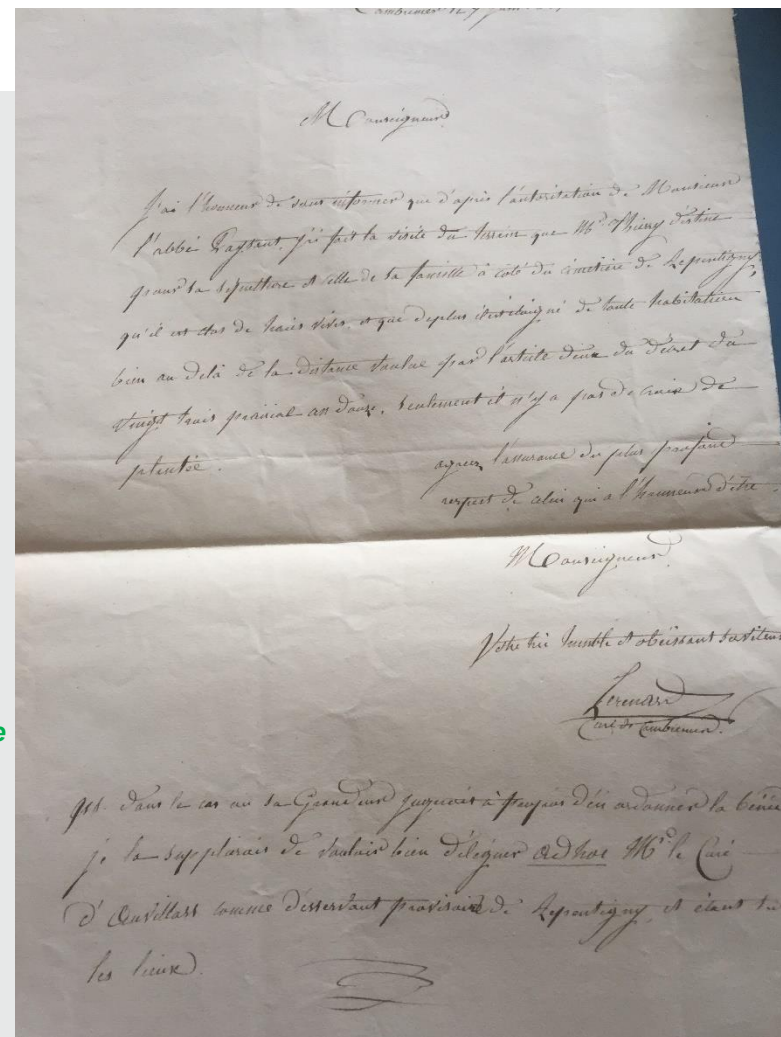 Cambremer le 27 juin
Monseigneur
J'ai l'honneur de vous informer que d'après l'autorisation de Monsieur
l'abbé j'ai fait la visite du terrein que Mr Thiery destine
pour sa sépulture et celle de sa famille à coté du cimetière de Repentigny,
qu'il est clos de haies vives, et que deplus il est éloigné de toute habitation
bien au delà de la distance voulue par l'article deux du décret du
vingt trois prairial an douze, seulement il n'y a pas de croix de
plantée.
agréez l'assurance du plus profond
respect de celui qui a l'honneur d'être
Monseigneur
Votre très humble et obéissant serviteur
Lerenard
Curé de Cambremer.
Dans le cas où sa Grandeur jugerait à propos d'en ordonner la béné
je la supplierais de vouloir bien déléguer ad hoc Mr le Curé
d'Auvillars comme desservant provisoire de Repentigny, et étant su
les lieux.
e